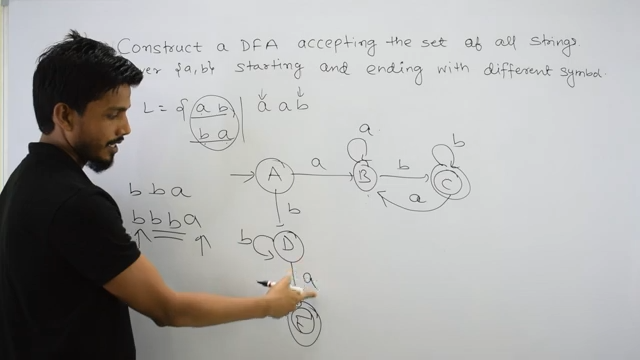 Construct a DFA accepting the set of all strings
over {a,b} starting and ending with different symbol.
L = { a b, | a a b
b a
a
b
A a B b C
b b a
a
b
b b b a
b D
a
E